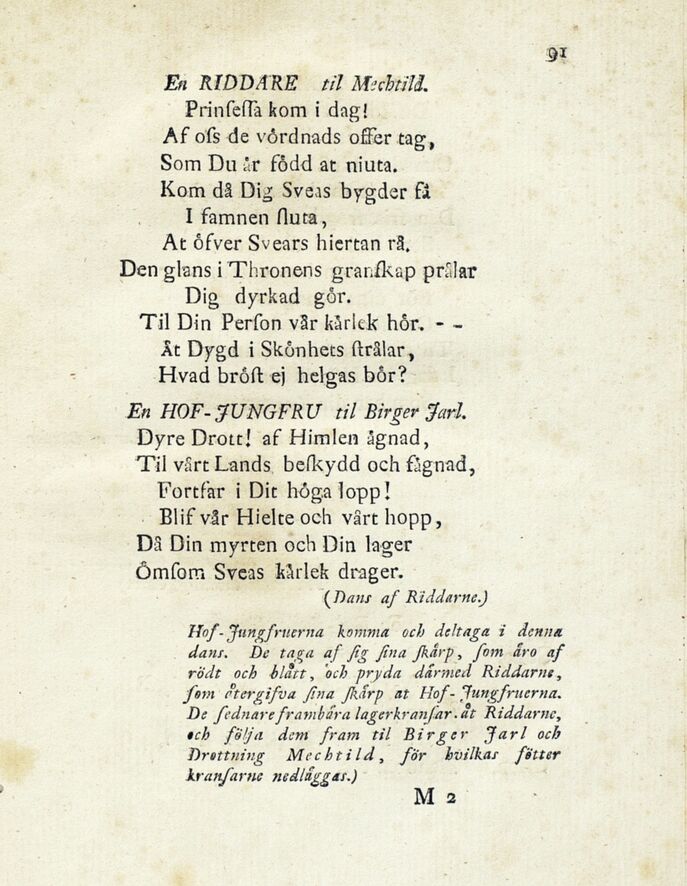 91
En RIDDARE til Mechtild.
Prinſeſſa kom i dag!
Af oſs de vördnads offer tag,
Som Du är född at niuta.
Kom då Dig Sveas bygder få
I famnen ſluta,
At öfver Svears hiertan rå.
Den glans i Thronens granſkap prålar
Dig dyrkad gör.
Til Din Perſon vår kärlek hör. - -
Åt Dygd i Skönhets ſtrålar,
Hvad bröſt ej helgas bör?
En HOF-JUNGFRU til Birger Jarl.
Dyre Drott! af Himlen ägnad,
Til vårt Lands beſkydd och fägnad,
Fortfar i Dit höga lopp!
Blif vår Hielte och vårt hopp,
Då Din myrten och Din lager
Ömſom Sveas kärlek drager.
(Dans af Riddarne.)
Hof-Jungfruerna komma och deltaga i denna
dans. De taga af ſig ſina ſkärp, ſom äro af
rödt och blått, och pryda därmed Riddarne,
ſom återgifva ſina ſkärp at Hof-Jungfruerna.
De ſednare frambära lagerkranſar åt Riddarne,
och följa dem fram til Birger Jarl och
Drottning Mechtild, för hvilkas fötter
kranſarne nedläggas.)
M 2